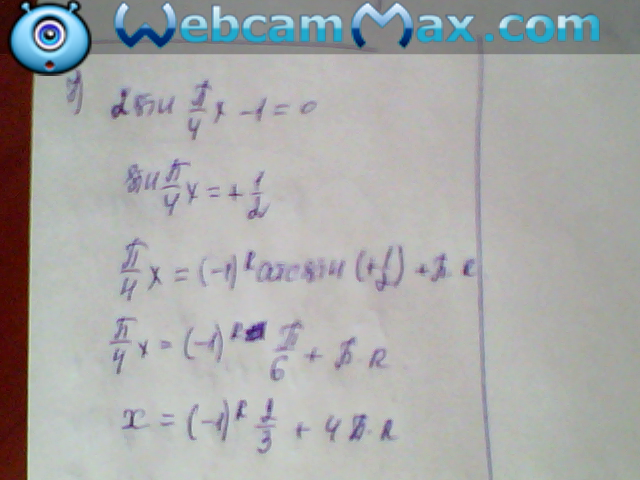 WebcamMax.com
2 sin π/4 x - 1 = 0
sin π/4 x = + 1/2
π/4 x = (-1)^k arcsin (+1/2) + π k
π/4 x = (-1)^k π/6 + π k
x = (-1)^k 2/3 + 4 π k